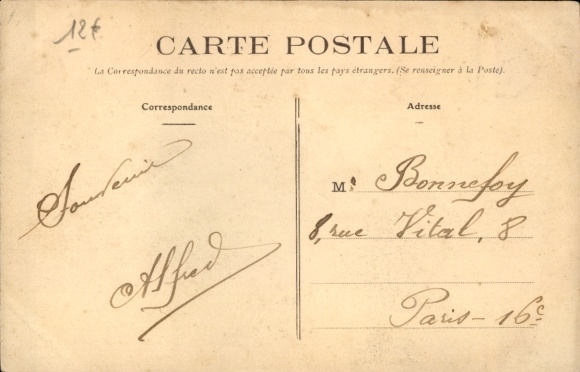 12€
CARTE POSTALE
La Correspondance du recto n'est pas acceptée par tous les pays étrangers. (Se renseigner à la Poste).
Correspondance
Souvenir
Alfred
Adresse
Mr Bonnefoy
8, rue Vital, 8
Paris - 16e